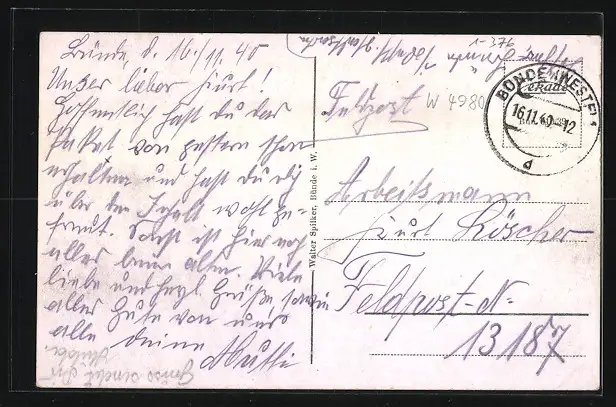 Bünde, d. 16./11.40
Unser lieber Kurt!
Hoffentlich hast du das
Paket von gestern schon
erhalten und hast du dich
über den Inhalt wohl ge-
freut. Sonst ist hier noch
alles beim alten. Viele
liebe und herzl. Grüße sowie
alles Gute von uns
alle deine
Mutti
Feldpost
W 4980
1-376
BÜNDE (WESTF)
16.11.40 -12
d
Walter Spilker, Bünde i. W.
Arbeitsmann
Kurt Löscher
Feldpost-Nr.
13187
Gruss sendet Dir